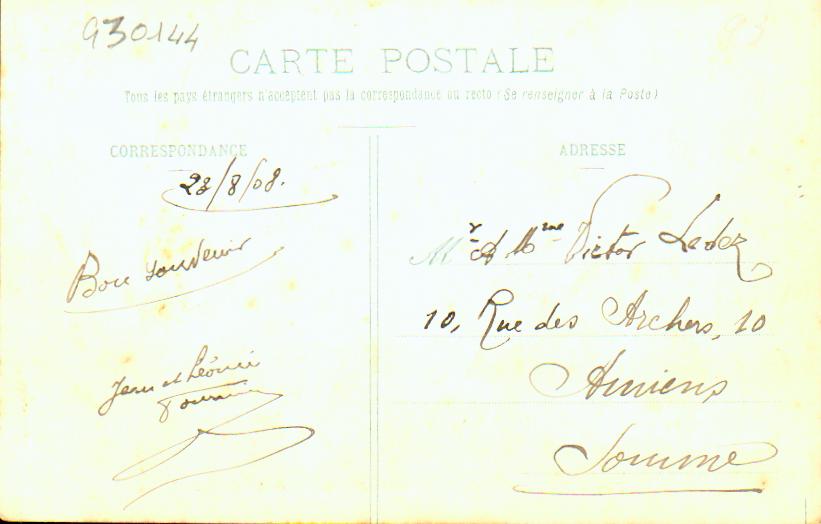 930144
CARTE POSTALE
Tous les pays étrangers n'acceptent pas la correspondance au recto (Se renseigner à la Poste)
CORRESPONDANCE
23/8/08.
Bon souvenir
Jean et Léonie
ADRESSE
Mr et Mme Victor Ledez
10, Rue des Archers, 10
Amiens
Somme